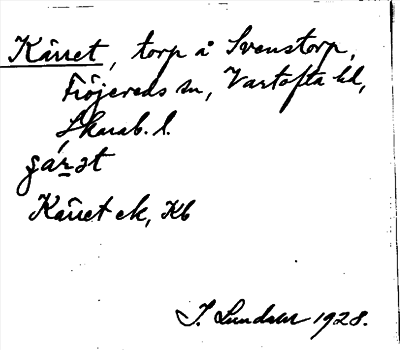 Kärret, torp å Svenstorp,
Fröjereds sn, Vartofta hd,
Skarab. l.
Kärret ek, Kb
J. Lundahl 1928.